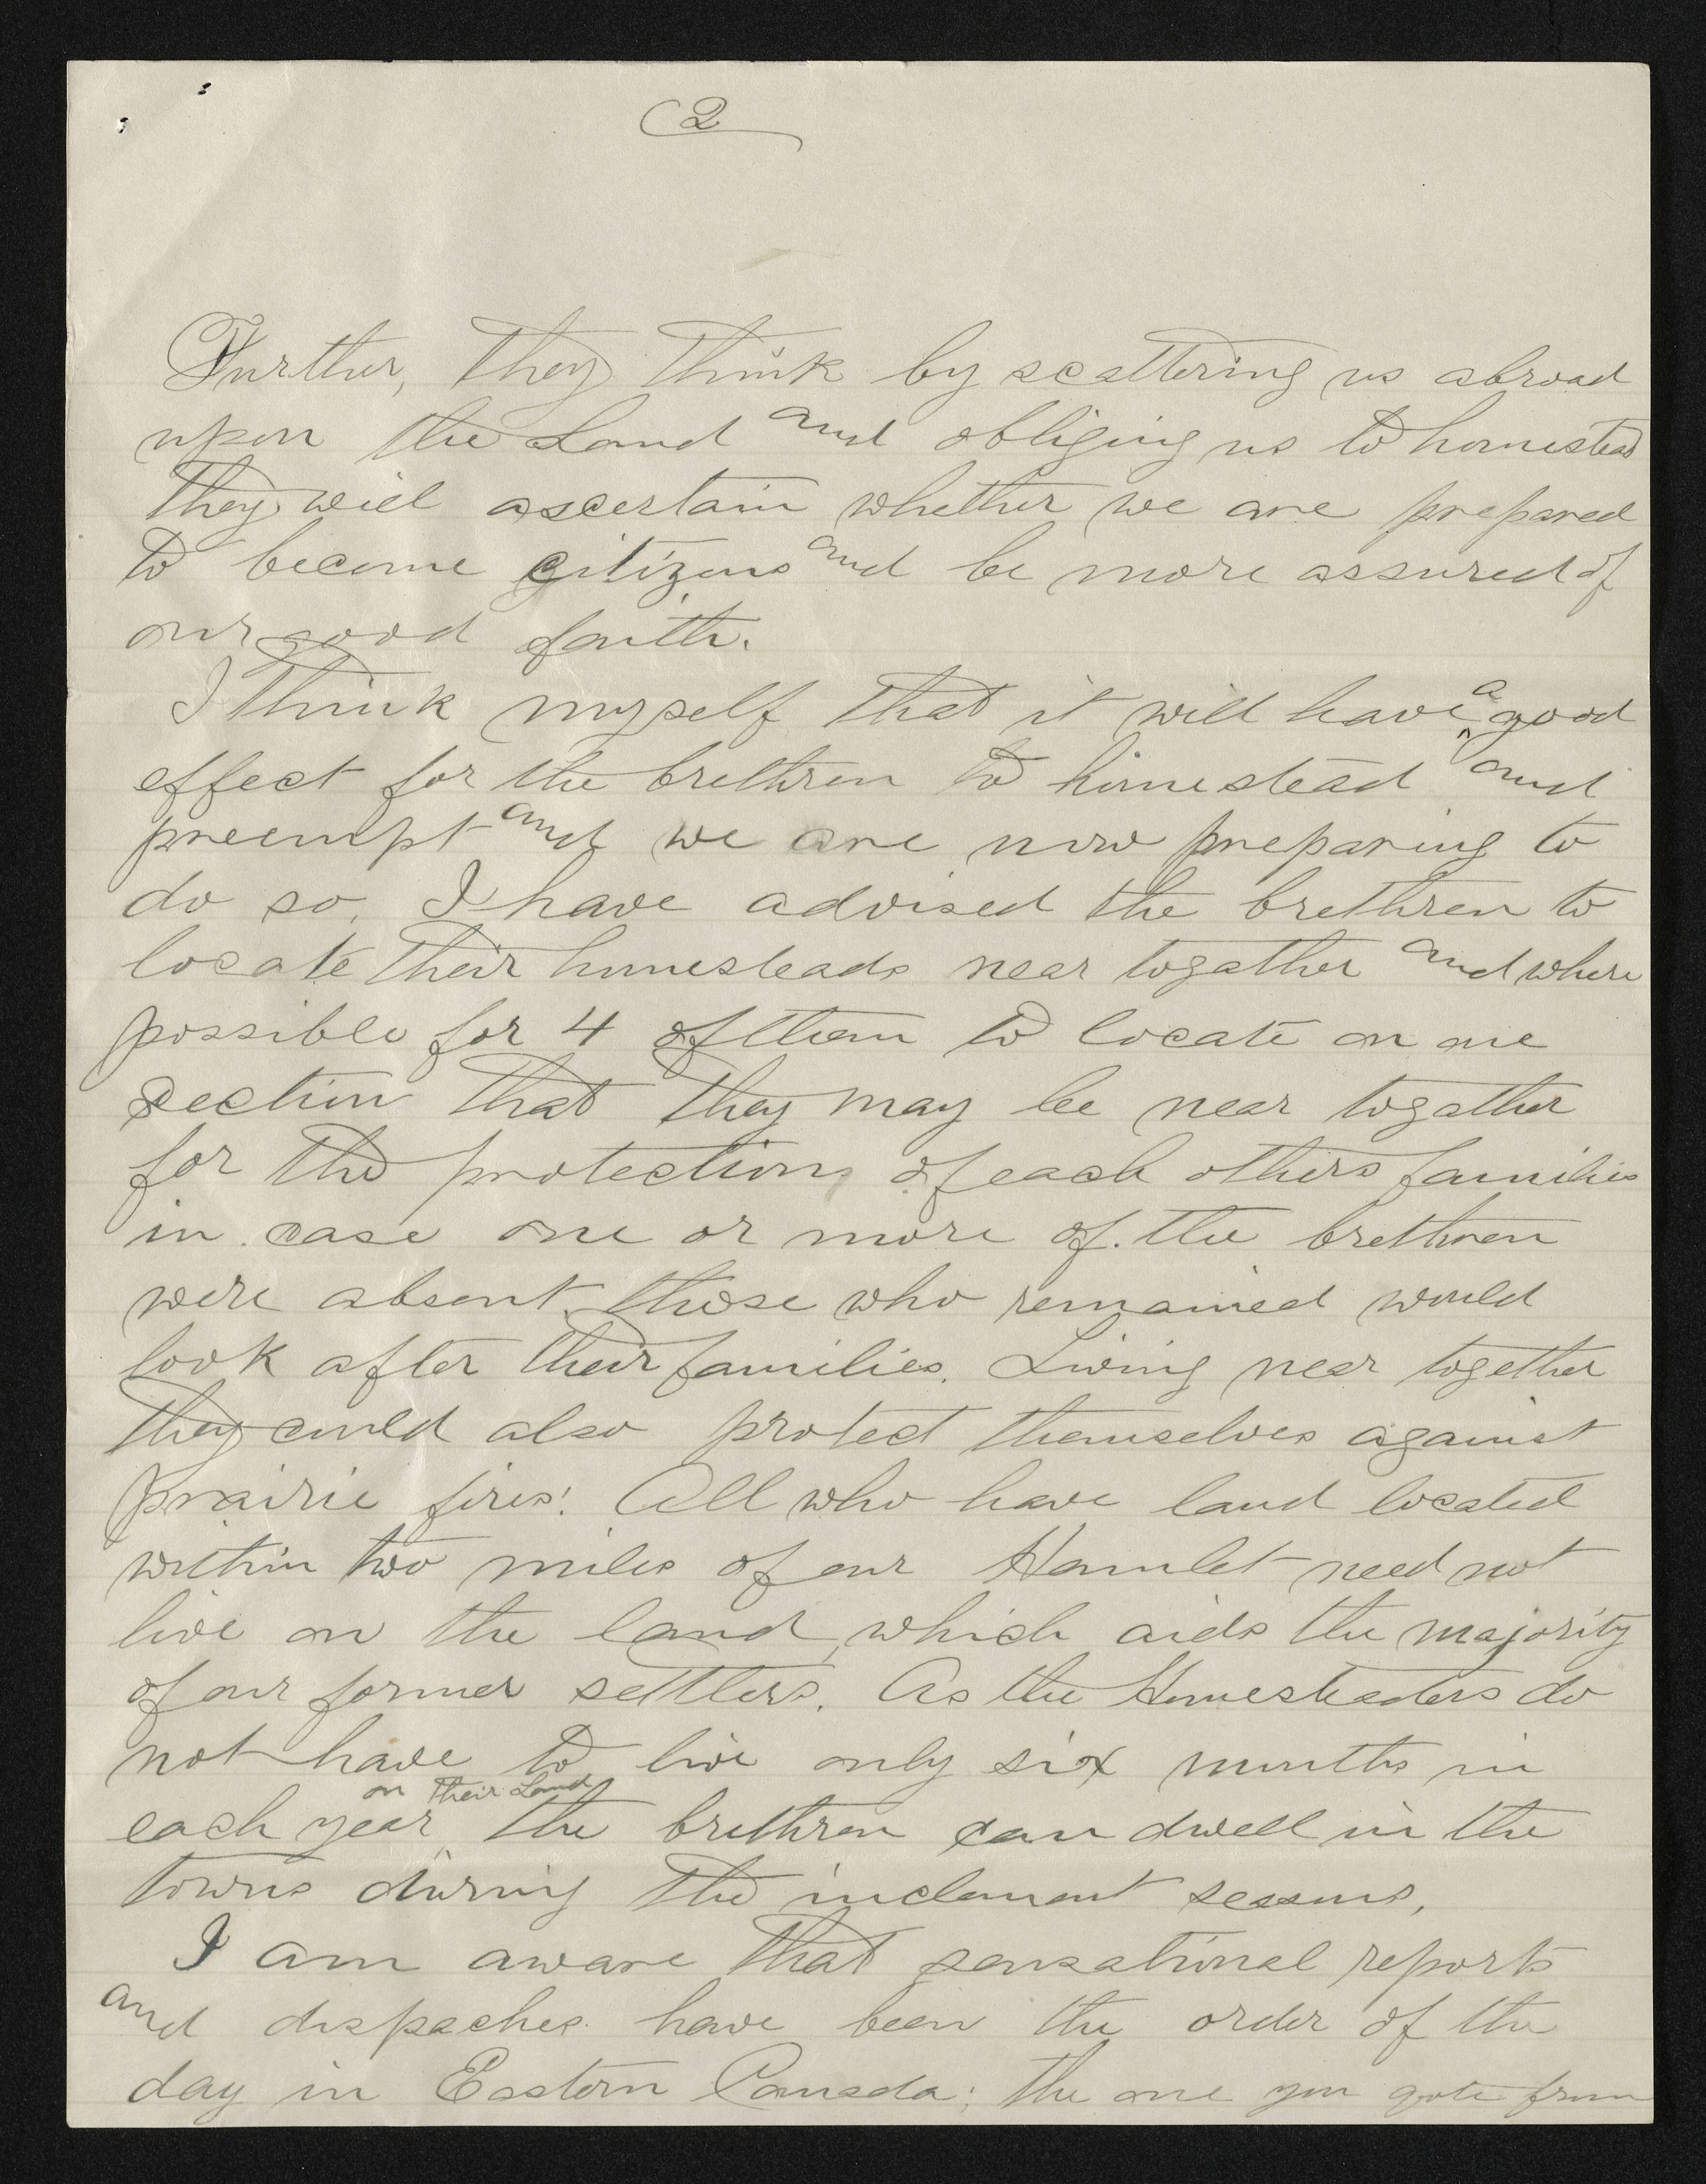 2
Further, they think by scattering us abroad
upon the Land and obliging us to homestead
they will ascertain whether we are prepared
to become citizens and be more assured of
our good faith.
I think myself that it will have a good
effect for the brethren to homestead and
preempt and we are now preparing to
do so. I have advised the brethren to
locate their homesteads near togather and where
possible for 4 of them to locate on one
section that they may be near togather
for the protection of each others families
in case one or more of the brethren
were absent, those who remained would
look after their families. Living near together
they could also protect themselves against
prairie fires. All who have land located
within two miles of our Hamlet need not
live on the land, which aids the majority
of our former settlers. As the Homesteaders do
not have to live only six months in
on their Land
each year the brethren can dwell in the
towns during the inclement seasons,
I am aware that sensational reports
and dispaches have been the order of the
day in Eastern Canada; the one you qote from